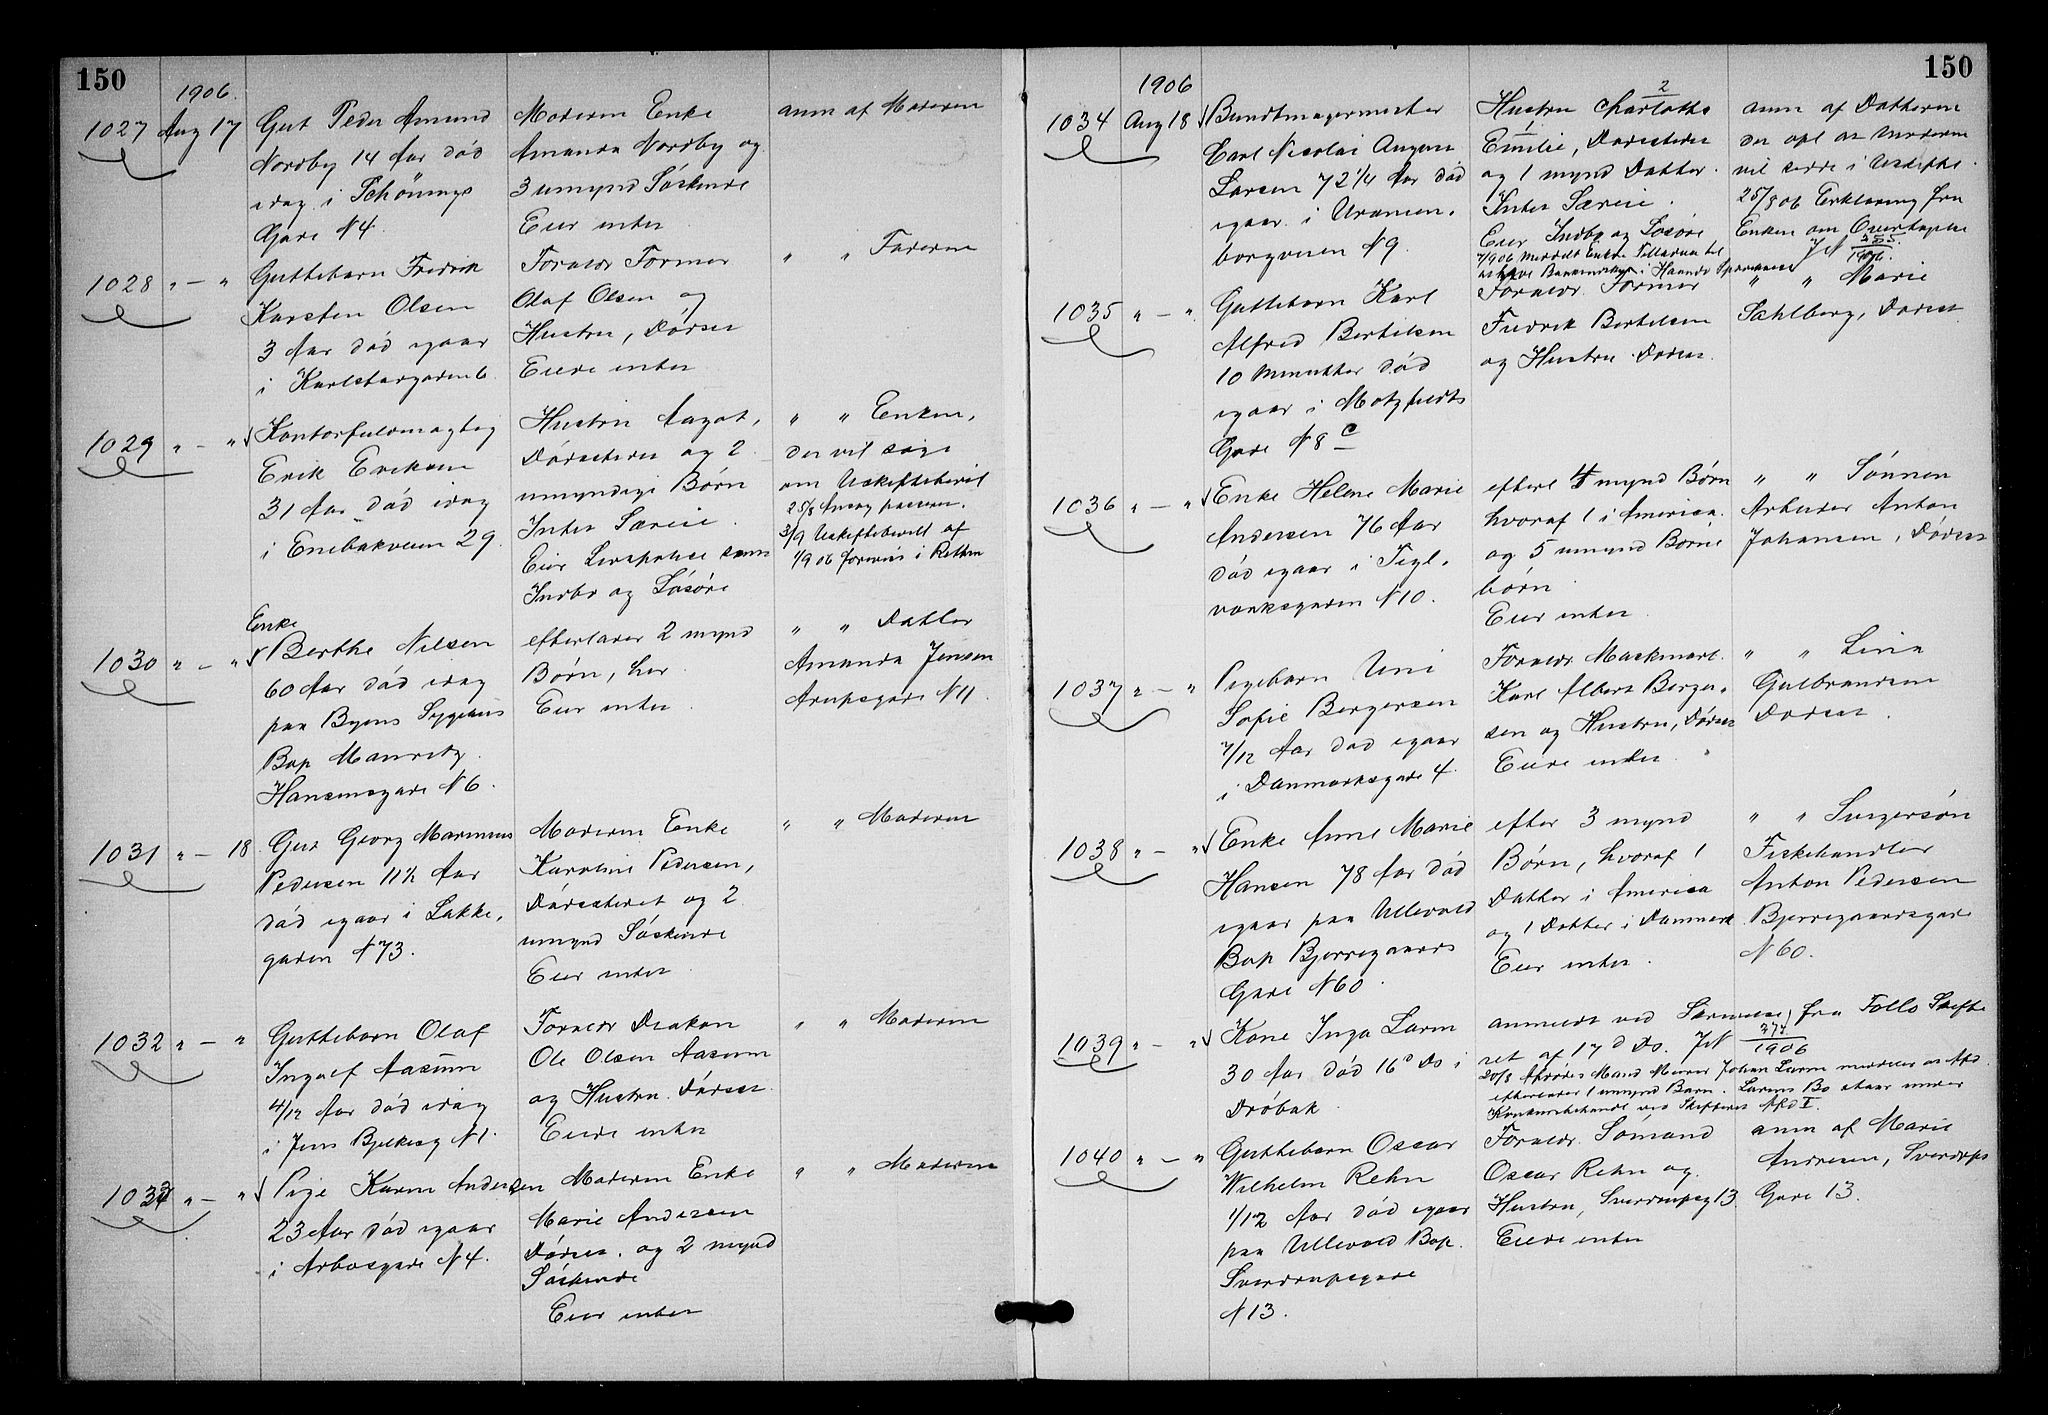 150
1906.
1027 Aug 17 Gut Peder Amund
Nordby 14 Aar død
idag i Schönings
Gade N 4.
Moderen Enke
Amanda Nordby og
3 umynd Søskende
Eier intet
anm af Moderen
1028 " — " Guttebarn Fredrik
Karsten Olsen
3 Aar død igaar
i Karlstadgaden 6
Forældr Former
Olaf Olsen og
Hustru, Dødsst
Eiede intet
" " Faderen
1029 " — " Kontorfuldmægtig
Erik Eriksen
31 Aar død idag
i Enebakveien 29.
Hustru Aagot,
Dødsstedet og 2
umyndige Børn
Intet Særeie.
Eier Livspolice samt
Indbo og Løsøre
" " Enken,
der vil søge
om Uskiftebevil
25/8 Ansøg passeret.
3/9 Uskiftebevill af
1/9 06 forevist i Retten
Enke
1030 " — " Berthe Nilsen
60 Aar død idag
paa Byens Sygehus
Bop Mauritz
Hansensgade N 6.
efterlader 2 mynd
Børn, her
Eier intet
" " Datter
Amanda Jensen
Arupsgade N 11.
1031 " — 18 Gut Georg Marinius
Pedersen 11½ Aar
død igaar i Lakke-
gaden N 73.
Moderen Enke
Karoline Pedersen,
Dødsstedet og 2
umynd Søskende
Eier intet
" " Moderen
1032 " — " Guttebarn Olaf
Ingolf Aasum
4/12 Aar død idag
i Jens Bjelkesg N 1.
Forældr Diakon
Ole Olsen Aasum
og Hustru. Dødsst.
Eiede intet
" " Moderen
1033 " — " Pige Karen Andersen
23 Aar død igaar
i Arbosgade N 4.
Moderen Enke
Marie Andersen
Dødsst. og 2 mynd
Søskende
Eier intet
" " Moderen
150
1906
1034 Aug 18 Bundtmagermester
Carl Nicolai August
Larsen 72 1/4 Aar død
igaar i Uranien-
borgveien N 9.
2
Hustru Charlotte
Emilie, Dødsstedet
og 1 mynd Datter.
Intet Særeie.
Eier Indbo og Løsøre
anm af Datteren
der opl at Moderen
vil sidde i Uskifte.
25/8 06 Erklæring fra
Enken om Overtagelse
JN 355/1906.
1035 " — " Guttebarn Karl
Alfred Bertilsen
10 Minutter død
igaar i Motzfeldts
Gade N 8 c
Forældr. Former
Fredrik Bertelsen
og Hustru. Dødsst.
" " Marie
Sahlberg, Dødsst
1036 " — " Enke Helene Marie
Andersen 76 Aar
død igaar i Tegl-
værksgaden N 10.
efterl 4 mynd Børn
hvoraf 1 i America.
og 5 umynd Børne
børn
Eier intet
" " Sønnen
Arbeider Anton
Johansen, Dødsst
1037 " — " Pigebarn Uni
Sofie Bergersen
7/12 Aar død igaar
i Danmarksgade 4.
Forældr Maskinarb.
Karl Albert Berger-
sen og Hustru, Dødsst
Eiede intet
" " Lina
Gulbrandsen
Dødsst.
1038 " — " Enke Anne Marie
Hansen 78 Aar død
igaar paa Ullevold
Bop Bjerregaards
Gade N 60.
efter 3 mynd
Børn, hvoraf 1
Datter i America
og 1 Datter i Danmark
Eier intet.
" " Svigersøn
Fiskehandler
Anton Pedersen
Bjerregaardsgade
N 60.
1039 " — " Kone Inga Larm
30 Aar død 16 d Ds i
Drøbak
anmeldt ved Skrivelse fra Follo Skifte
ret af 17 d Ds. JN 374/1906
20/8 Afdødes Mand Murer Johan Larm meddeler at Afd
efterlader 1 umynd Barn. Larms Bo staar under
Konkursbehandl ved Skifteret Afd I.
1040 " — " Guttebarn Oscar
Wilhelm Rehn
1/12 Aar død igaar
paa Ullevold Bop.
Sverdrupsgade
N 13.
Forældr. Sømand
Oscar Rehn og
Hustru, Sverdrupsg 13.
Eiede intet
anm af Marie
Andresen, Sverdrups
Gade 13.